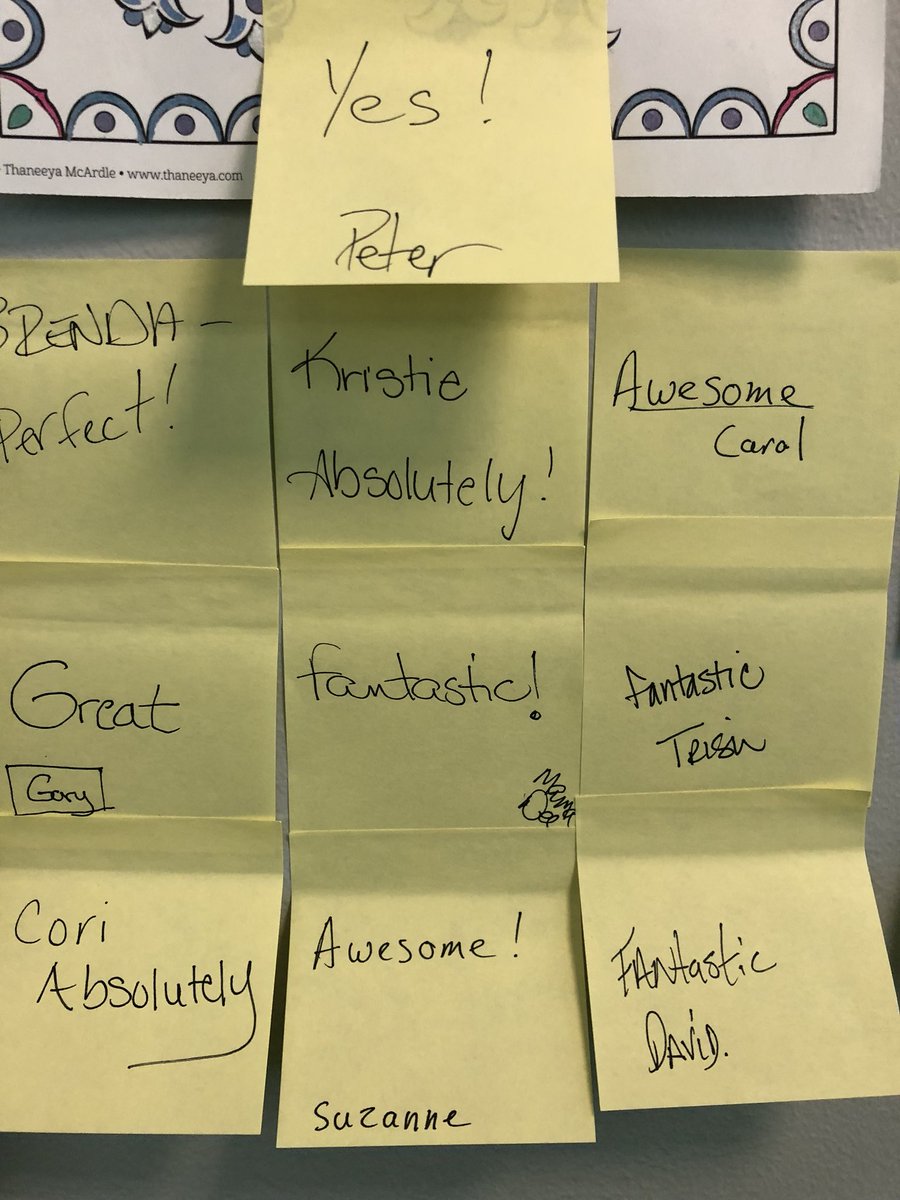 Yes!
Peter
Thaneeya McArdle • www.thaneeya.com
BRENDA –
Perfect!
Kristie
Absolutely!
Awesome
Carol
Great
Gary
Fantastic!
Fantastic
Trish
Cori
Absolutely
Awesome!
Suzanne
FANtastic
DAVID.